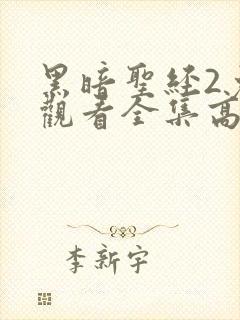 黑暗聖經2
觀看全集高
李新宇